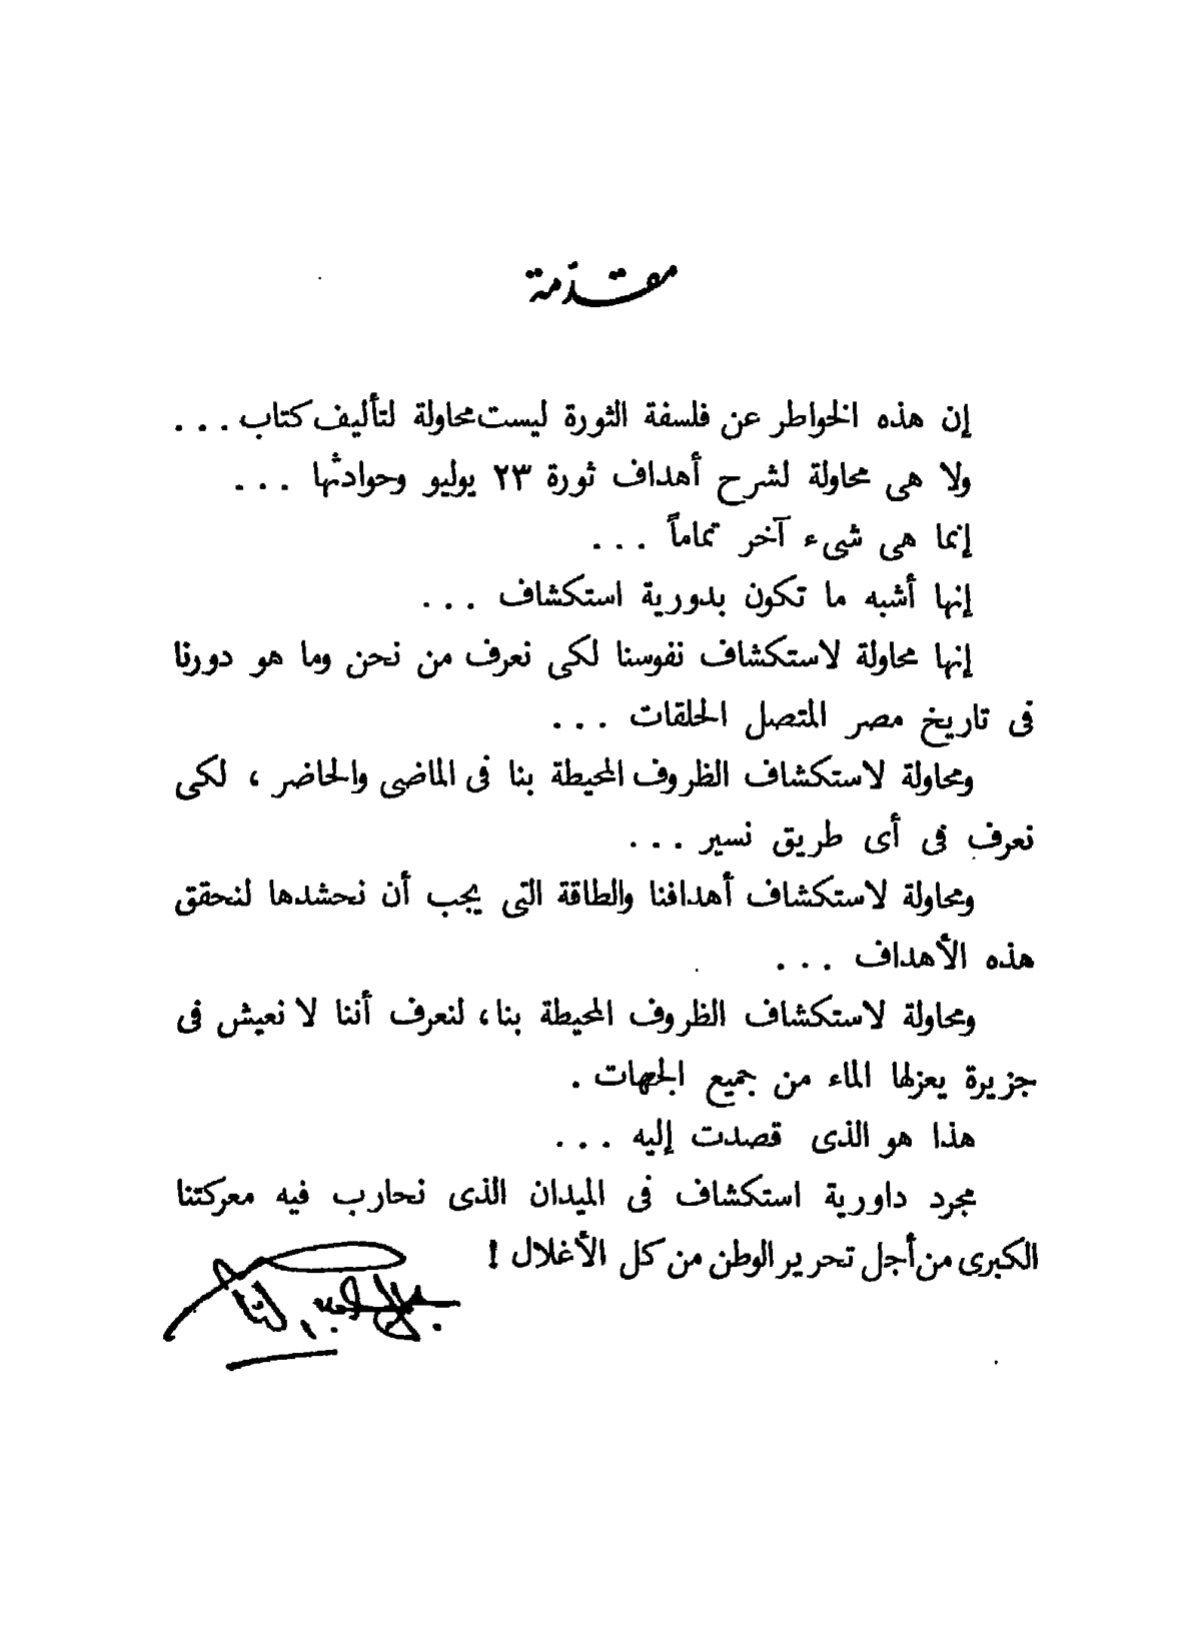 مقدمة
إن هذه الخواطر عن فلسفة الثورة ليست محاولة لتأليف كتاب ...
ولا هى محاولة لشرح أهداف ثورة ٢٣ يوليو وحوادثها ...
إنما هى شىء آخر تماماً ...
إنها أشبه ما تكون بدورية استكشاف ...
إنها محاولة لاستكشاف نفوسنا لكى نعرف من نحن وما هو دورنا
فى تاريخ مصر المتصل الحلقات ...
ومحاولة لاستكشاف الظروف المحيطة بنا فى الماضى والحاضر ، لكى
نعرف فى أى طريق نسير ...
ومحاولة لاستكشاف أهدافنا والطاقة التى يجب أن نحشدها لنحقق
هذه الأهداف ...
ومحاولة لاستكشاف الظروف المحيطة بنا ، لنعرف أننا لا نعيش فى
جزيرة يعزلها الماء من جميع الجهات .
هذا هو الذى قصدت إليه ...
مجرد داورية استكشاف فى الميدان الذى نحارب فيه معركتنا
الكبرى من أجل تحرير الوطن من كل الأغلال !
جمال عبد الناصر